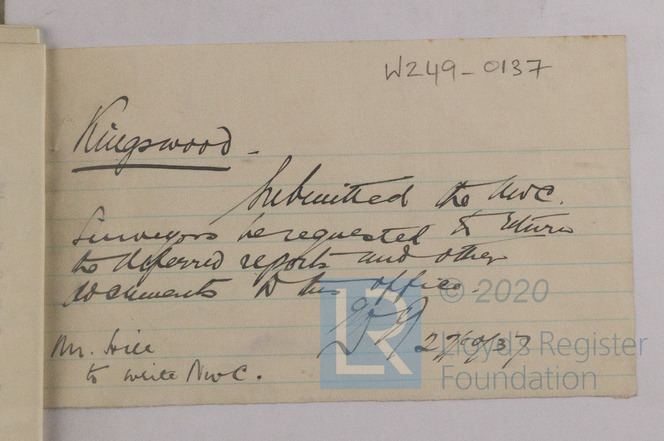 W249-0137
Kingswood -
Submitted the NwC.
Surveyors be requested to return
the deferred reports and other
documents to this office.
27/9/37
Mr. Hill
to write NwC.
LR
© 2020
Lloyd's Register
Foundation